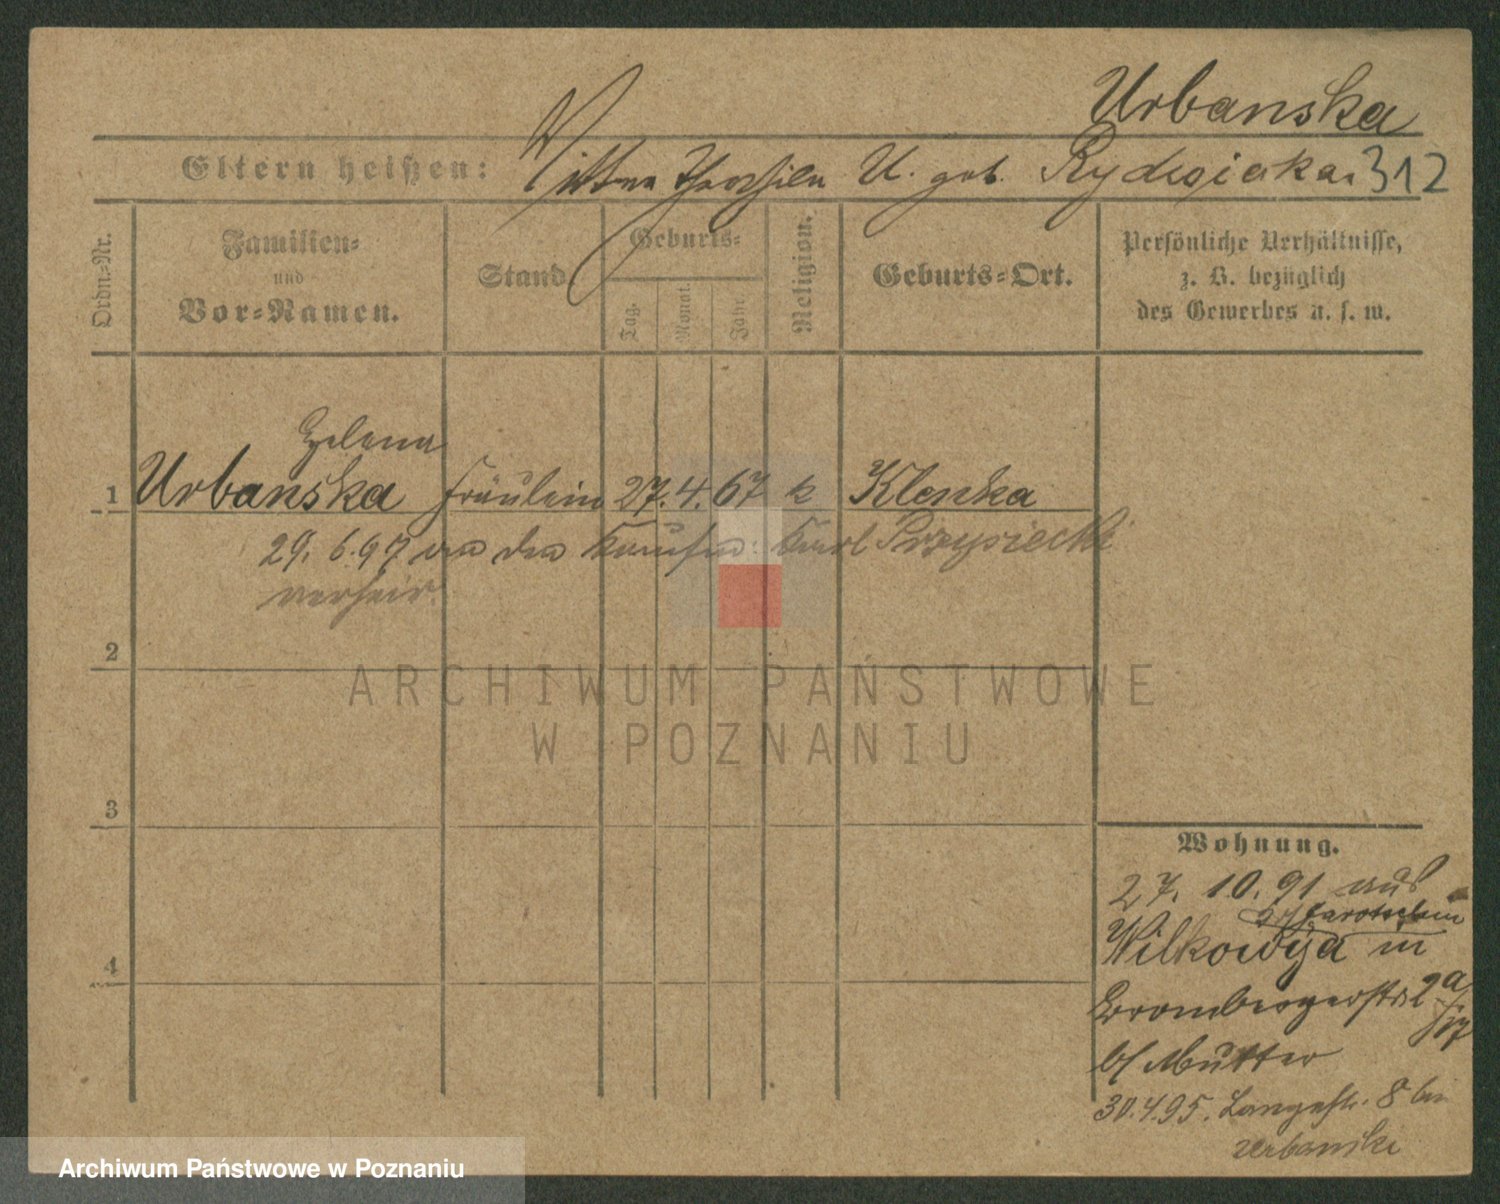 Urbanska
Eltern heißen: Wittwe Theophila U. geb. Rydzgieka. 312
Ordn.-Nr. Familien- und Vor-Namen. Stand Geburts- Tag. Monat. Jahr. Religion. Geburts-Ort. Persönliche Verhältnisse, z. B. bezüglich des Gewerbes u. s. w.
Helena
1 Urbanska Fräulein 27. 4. 67 k Klenka
29. 6. 97 an den Kaufm: Karl Przysiecki
verheir.
2
3
4
Wohnung.
27. 10. 91 aus
Jarotschin
Wilkowyja in
Brombergerstr. 2a
b/ Mutter
30. 4. 95. Langestr. 8 bei
Urbanski
ARCHIWUM PAŃSTWOWE
W POZNANIU
Archiwum Państwowe w Poznaniu